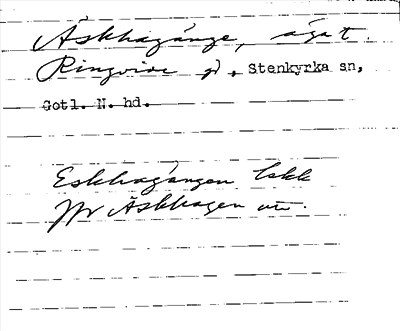 Äskhagänge, ägat.
Ringvide gd, Stenkyrka sn,
Gotl. N. hd.
Eskhagängen Lskk
Nr Äskhagen